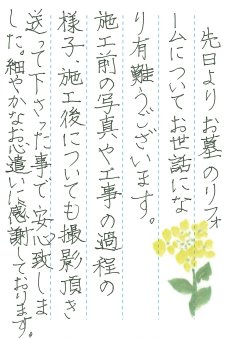 先日よりお墓のリフォ
ームについてお世話にな
り有難うございます。
施工前の写真や工事の過程の
様子、施工後についても撮影頂き
送って下さった事で安心致しま
した。細やかなお心遣いに感謝しております。